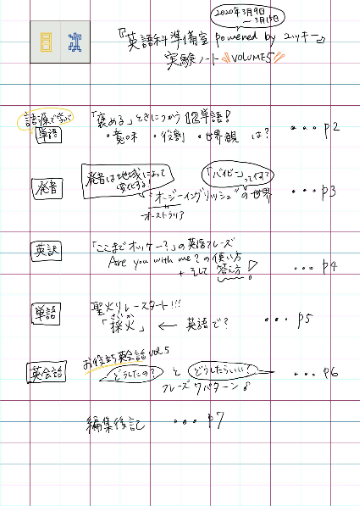 2020年3月9日
〜3月15日
『英語科準備室 powered by ユッキー』
実験ノート VOLUME5
語源で学ぶ
単語
「褒める」ときにつかう 単語!
・意味 ・役割 ・世界観 は?
・・・ P2
発音
発音は地域によって
変化する!
「バイビー」って何?
"オージーイングリッシュ"の世界
オーストラリア
・・・ P3
英訳
「ここまでオッケー?」の英語フレーズ
Are you with me? の使い方
+ そして 答え方!
・・・ P4
単語
聖火リレースタート!!!
さいか
「採火」 ← 英語で?
・・・ P5
英会話
お役立ち英会話 vol.5
どうしたの? と どうしたらいい?
フレーズ 7パターン♪
・・・ P6
編集後記 ・・・ P7